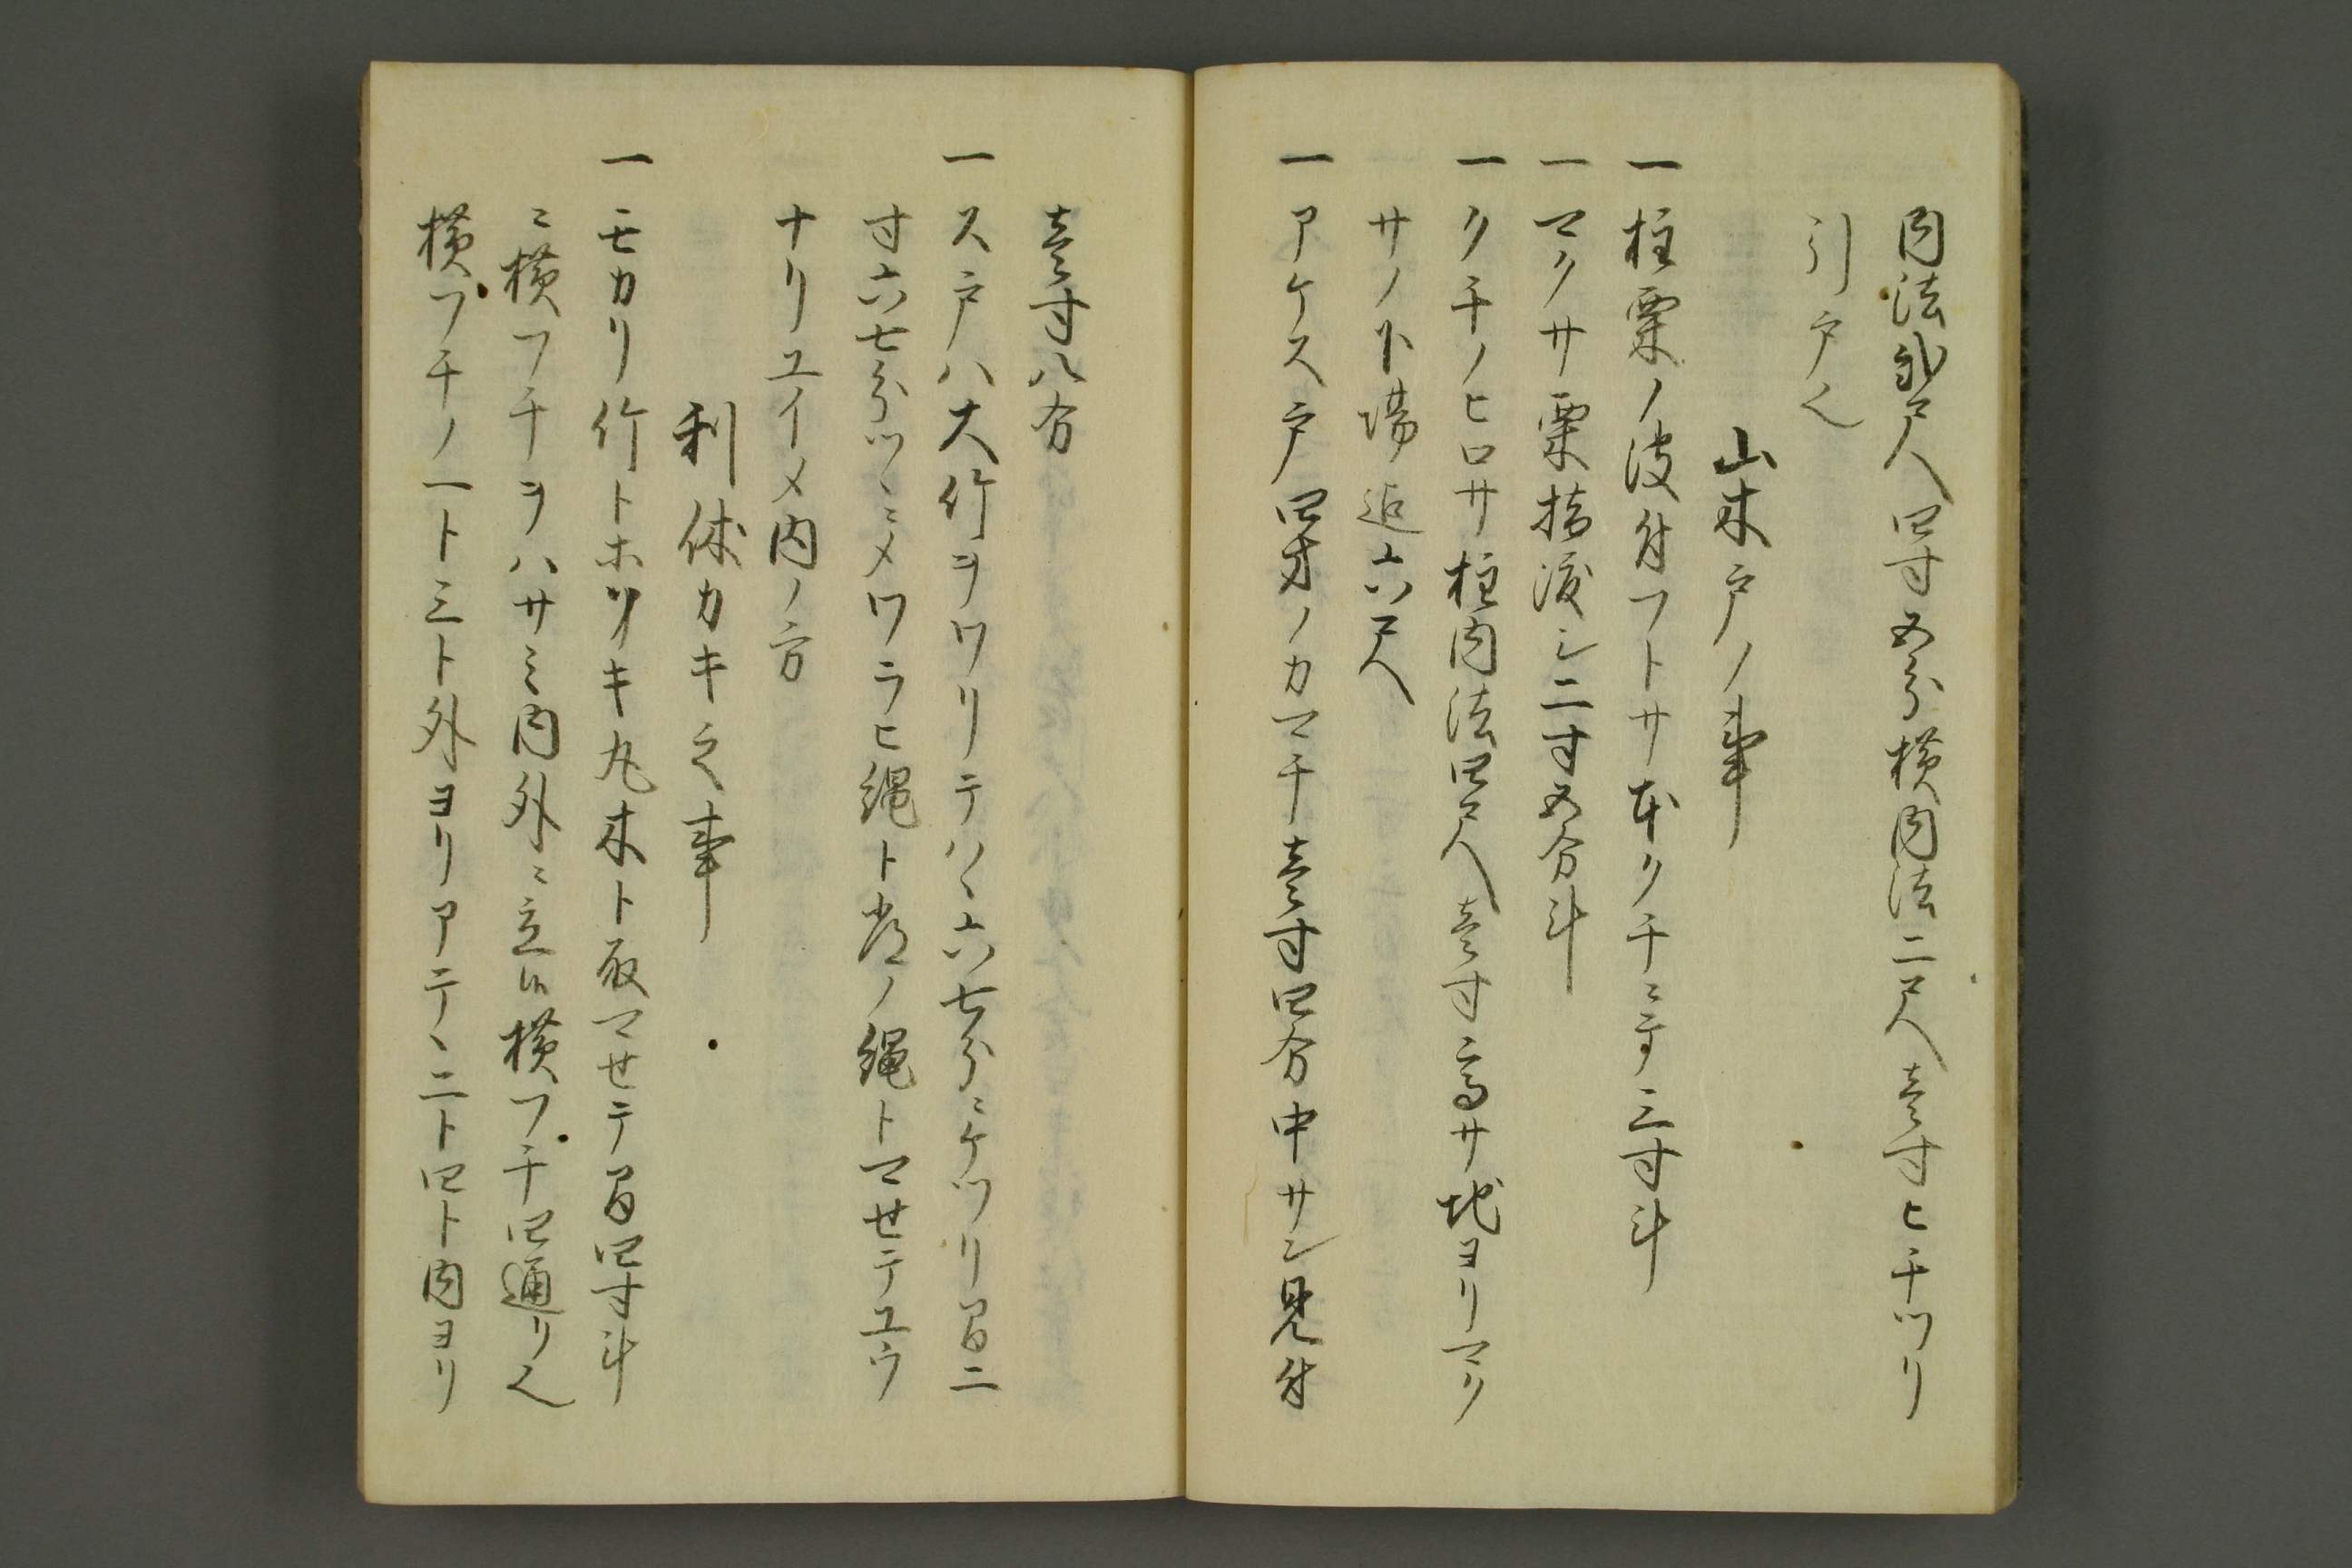 内法弐尺四寸五分横内法二尺壱寸ヒチツリ
引戸也
山木戸ノ事
一柱栗ノ皮付フトサ本クチニテ三寸斗
一マクサ栗揩渡シ二寸五分斗
一クチノヒロサ柱内法四尺壱寸高サ地ヨリマク
サノ下場迄六尺
一アケス戸四方ノカマチ壱寸四分中サン見付
壱寸八分
一ス戸ハ大竹ヲワリテハヽ六七分ニケツリ間二
寸六七分ツヽニメワラヒ縄ト常ノ縄トマセテユウ
ナリユイメ内ノ方
利休カキ之事
一モカリ竹トホソキ丸木ト取マセテ間四寸斗
ニ横フチヲハサミ内外ニ立ル横フチ四通リ也
横フチノ一ト三ト外ヨリアテヽ二ト四ト内ヨリ